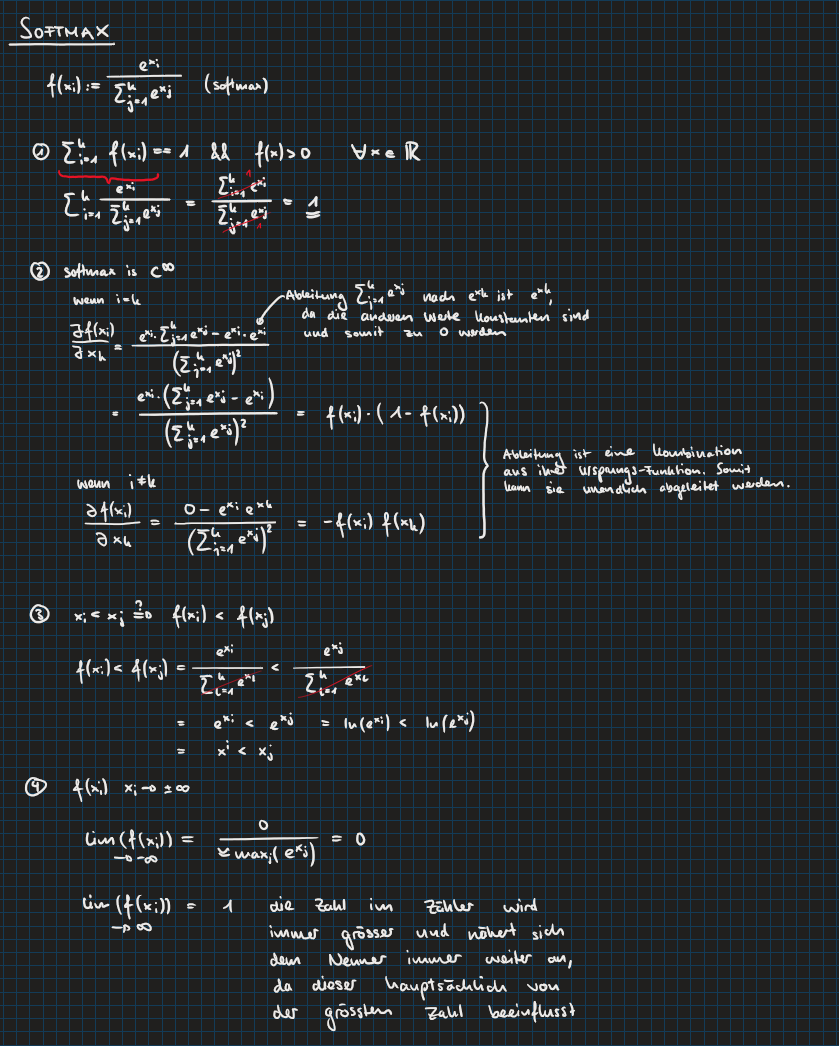 SOFTMAX
f(xᵢ) := e^{xᵢ} / Σ_{j=1}^{k} e^{xⱼ} (softmax)
① Σ_{i=1}^{k} f(xᵢ) == 1 && f(x) > 0 ∀ x ∈ ℝ
Σ_{i=1}^{k} e^{xᵢ} / Σ_{j=1}^{k} e^{xⱼ} = Σ_{i=1}^{k} e^{xᵢ} / Σ_{j=1}^{k} e^{xⱼ} = 1
② softmax is C^∞
wenn i=k
Ableitung Σ_{j=1}^{k} e^{xⱼ} nach e^{xₖ} ist e^{xₖ},
da die anderen Werte Konstanten sind
und somit zu 0 werden
∂f(xᵢ) / ∂xₖ = (e^{xᵢ} · Σ_{j=1}^{k} e^{xⱼ} − e^{xᵢ} · e^{xᵢ}) / (Σ_{j=1}^{k} e^{xⱼ})²
= e^{xᵢ} · (Σ_{j=1}^{k} e^{xⱼ} − e^{xᵢ}) / (Σ_{j=1}^{k} e^{xⱼ})² = f(xᵢ) · (1 − f(xᵢ))
Ableitung ist eine Kombination
aus ihrer Urspungs-Funktion. Somit
kann sie unendlich abgeleitet werden.
wenn i≠k
∂f(xᵢ) / ∂xₖ = (0 − e^{xᵢ} e^{xₖ}) / (Σ_{j=1}^{k} e^{xⱼ})² = −f(xᵢ) f(xₖ)
③ xᵢ < xⱼ ?⇒ f(xᵢ) < f(xⱼ)
f(xᵢ) < f(xⱼ) = e^{xᵢ} / Σ_{i=1}^{k} e^{xᵢ} < e^{xⱼ} / Σ_{i=1}^{k} e^{xᵢ}
= e^{xᵢ} < e^{xⱼ} = ln(e^{xᵢ}) < ln(e^{xⱼ})
= xⁱ < xⱼ
④ f(xᵢ) xᵢ → ±∞
lim_{→ -∞} (f(xᵢ)) = 0 / ≈ maxⱼ(e^{xⱼ}) = 0
lim_{→ ∞} (f(xᵢ)) = 1 die Zahl im Zähler wird
immer grösser und nähert sich
dem Nenner immer weiter an,
da dieser hauptsächlich von
der grössten Zahl beeinflusst